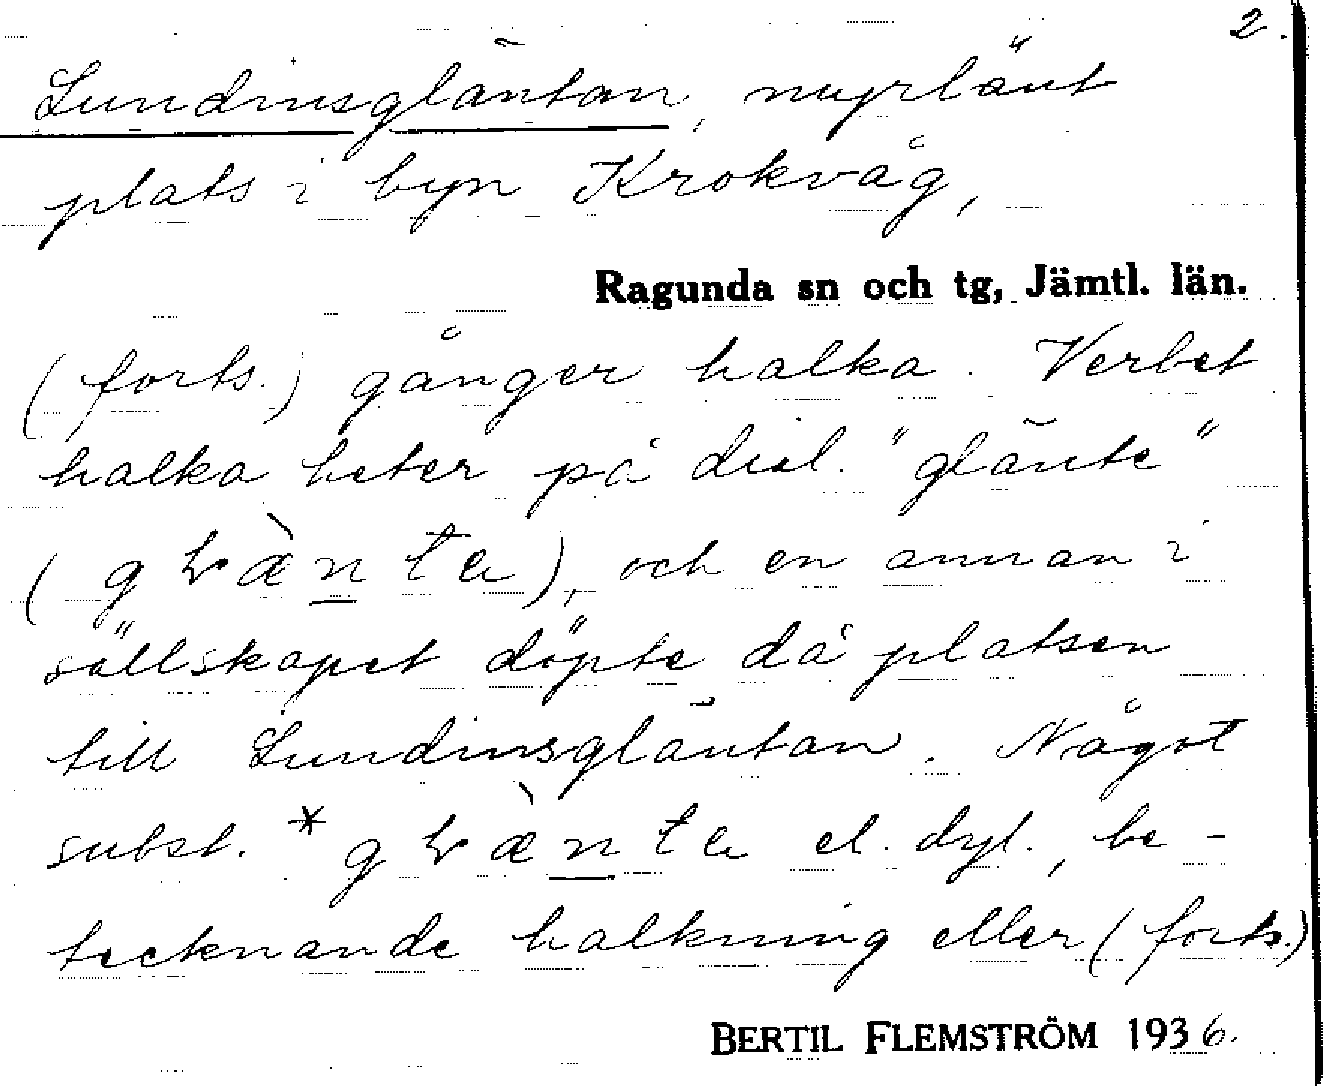 2.
Lundinsgläntan, myrlänt
plats i byn Krokvåg,
Ragunda sn och tg, Jämtl. län.
(forts.) gånger halka. Verbet
halka heter på dial. "glänte"
och en annan i
sällskapet döpte då platsen
till Lundinsgläntan. Något
subst. * el. dyl., be-
tecknande halkning eller (forts.)
BERTIL FLEMSTRÖM 1936.